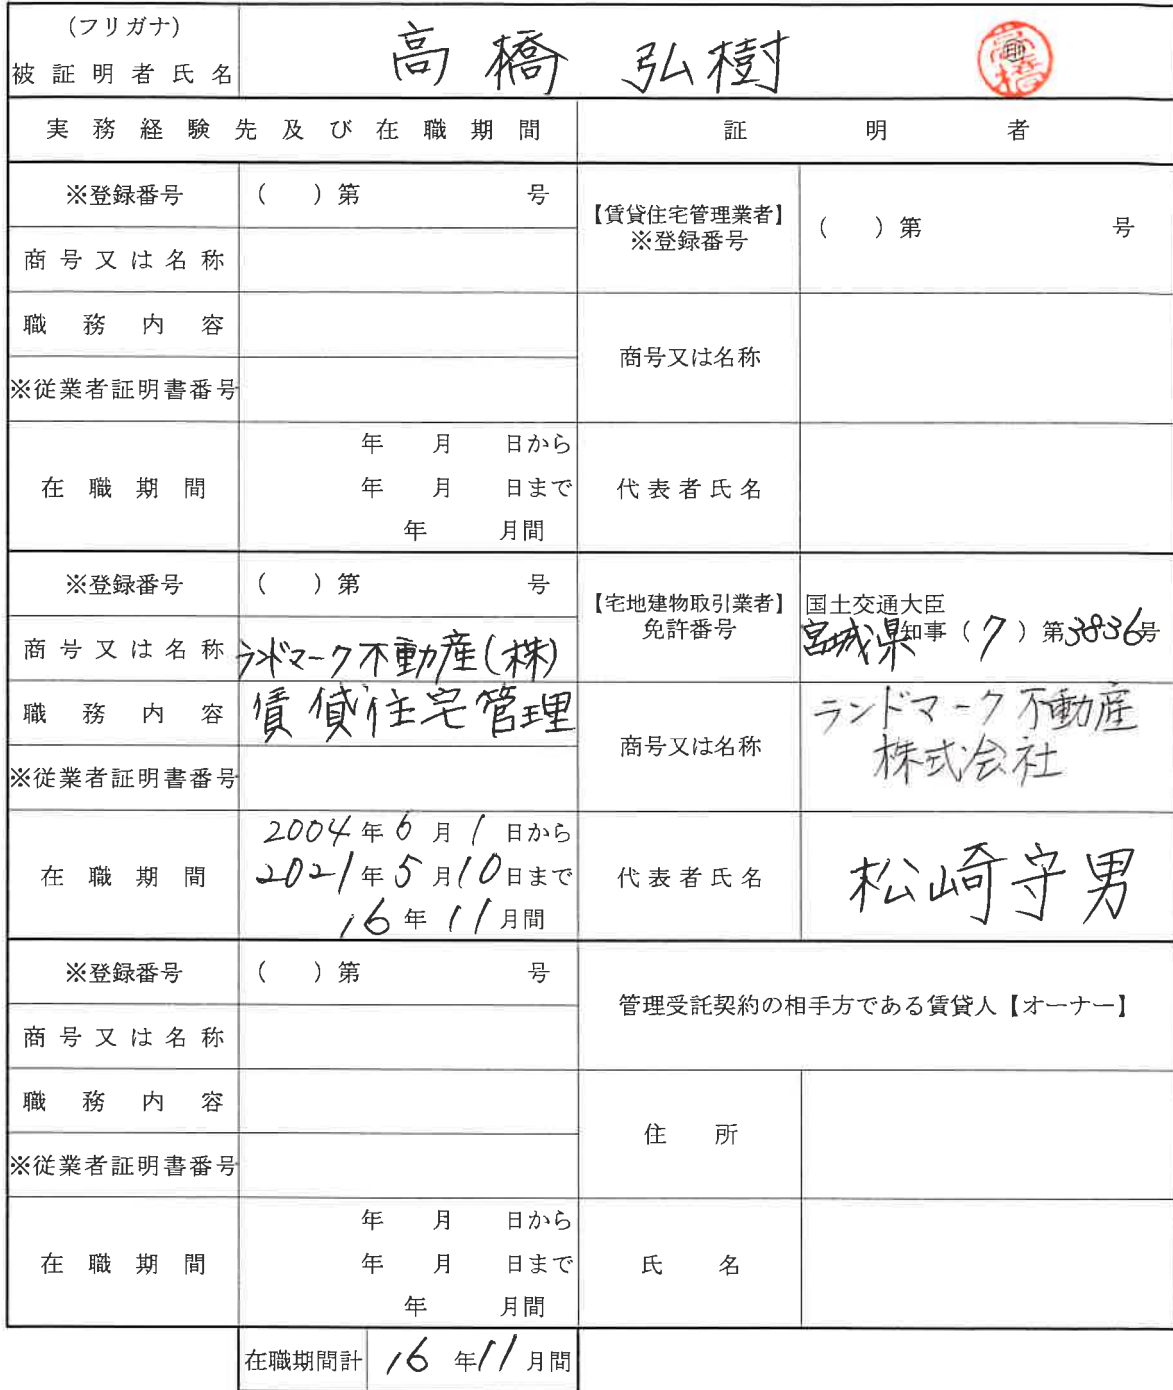 (フリガナ)
被証明者氏名 高橋 弘樹 ㊞ 高橋
実務経験先及び在職期間 証明者
※登録番号 ( ) 第 号
商号又は名称
職務内容
※従業者証明書番号
在職期間 年 月 日から
年 月 日まで
年 月間
【賃貸住宅管理業者】
※登録番号 ( ) 第 号
商号又は名称
代表者氏名
※登録番号 ( ) 第 号
商号又は名称 ランドマーク不動産(株)
職務内容 賃貸住宅管理
※従業者証明書番号
在職期間 2004年6月1日から
2021年5月10日まで
16年11月間
【宅地建物取引業者】
免許番号
国土交通大臣
宮城県知事(7)第3836号
商号又は名称 ランドマーク不動産
株式会社
代表者氏名 松崎守男
※登録番号 ( ) 第 号
商号又は名称
職務内容
※従業者証明書番号
在職期間 年 月 日から
年 月 日まで
年 月間
管理受託契約の相手方である賃貸人【オーナー】
住所
氏名
在職期間計 16年11月間